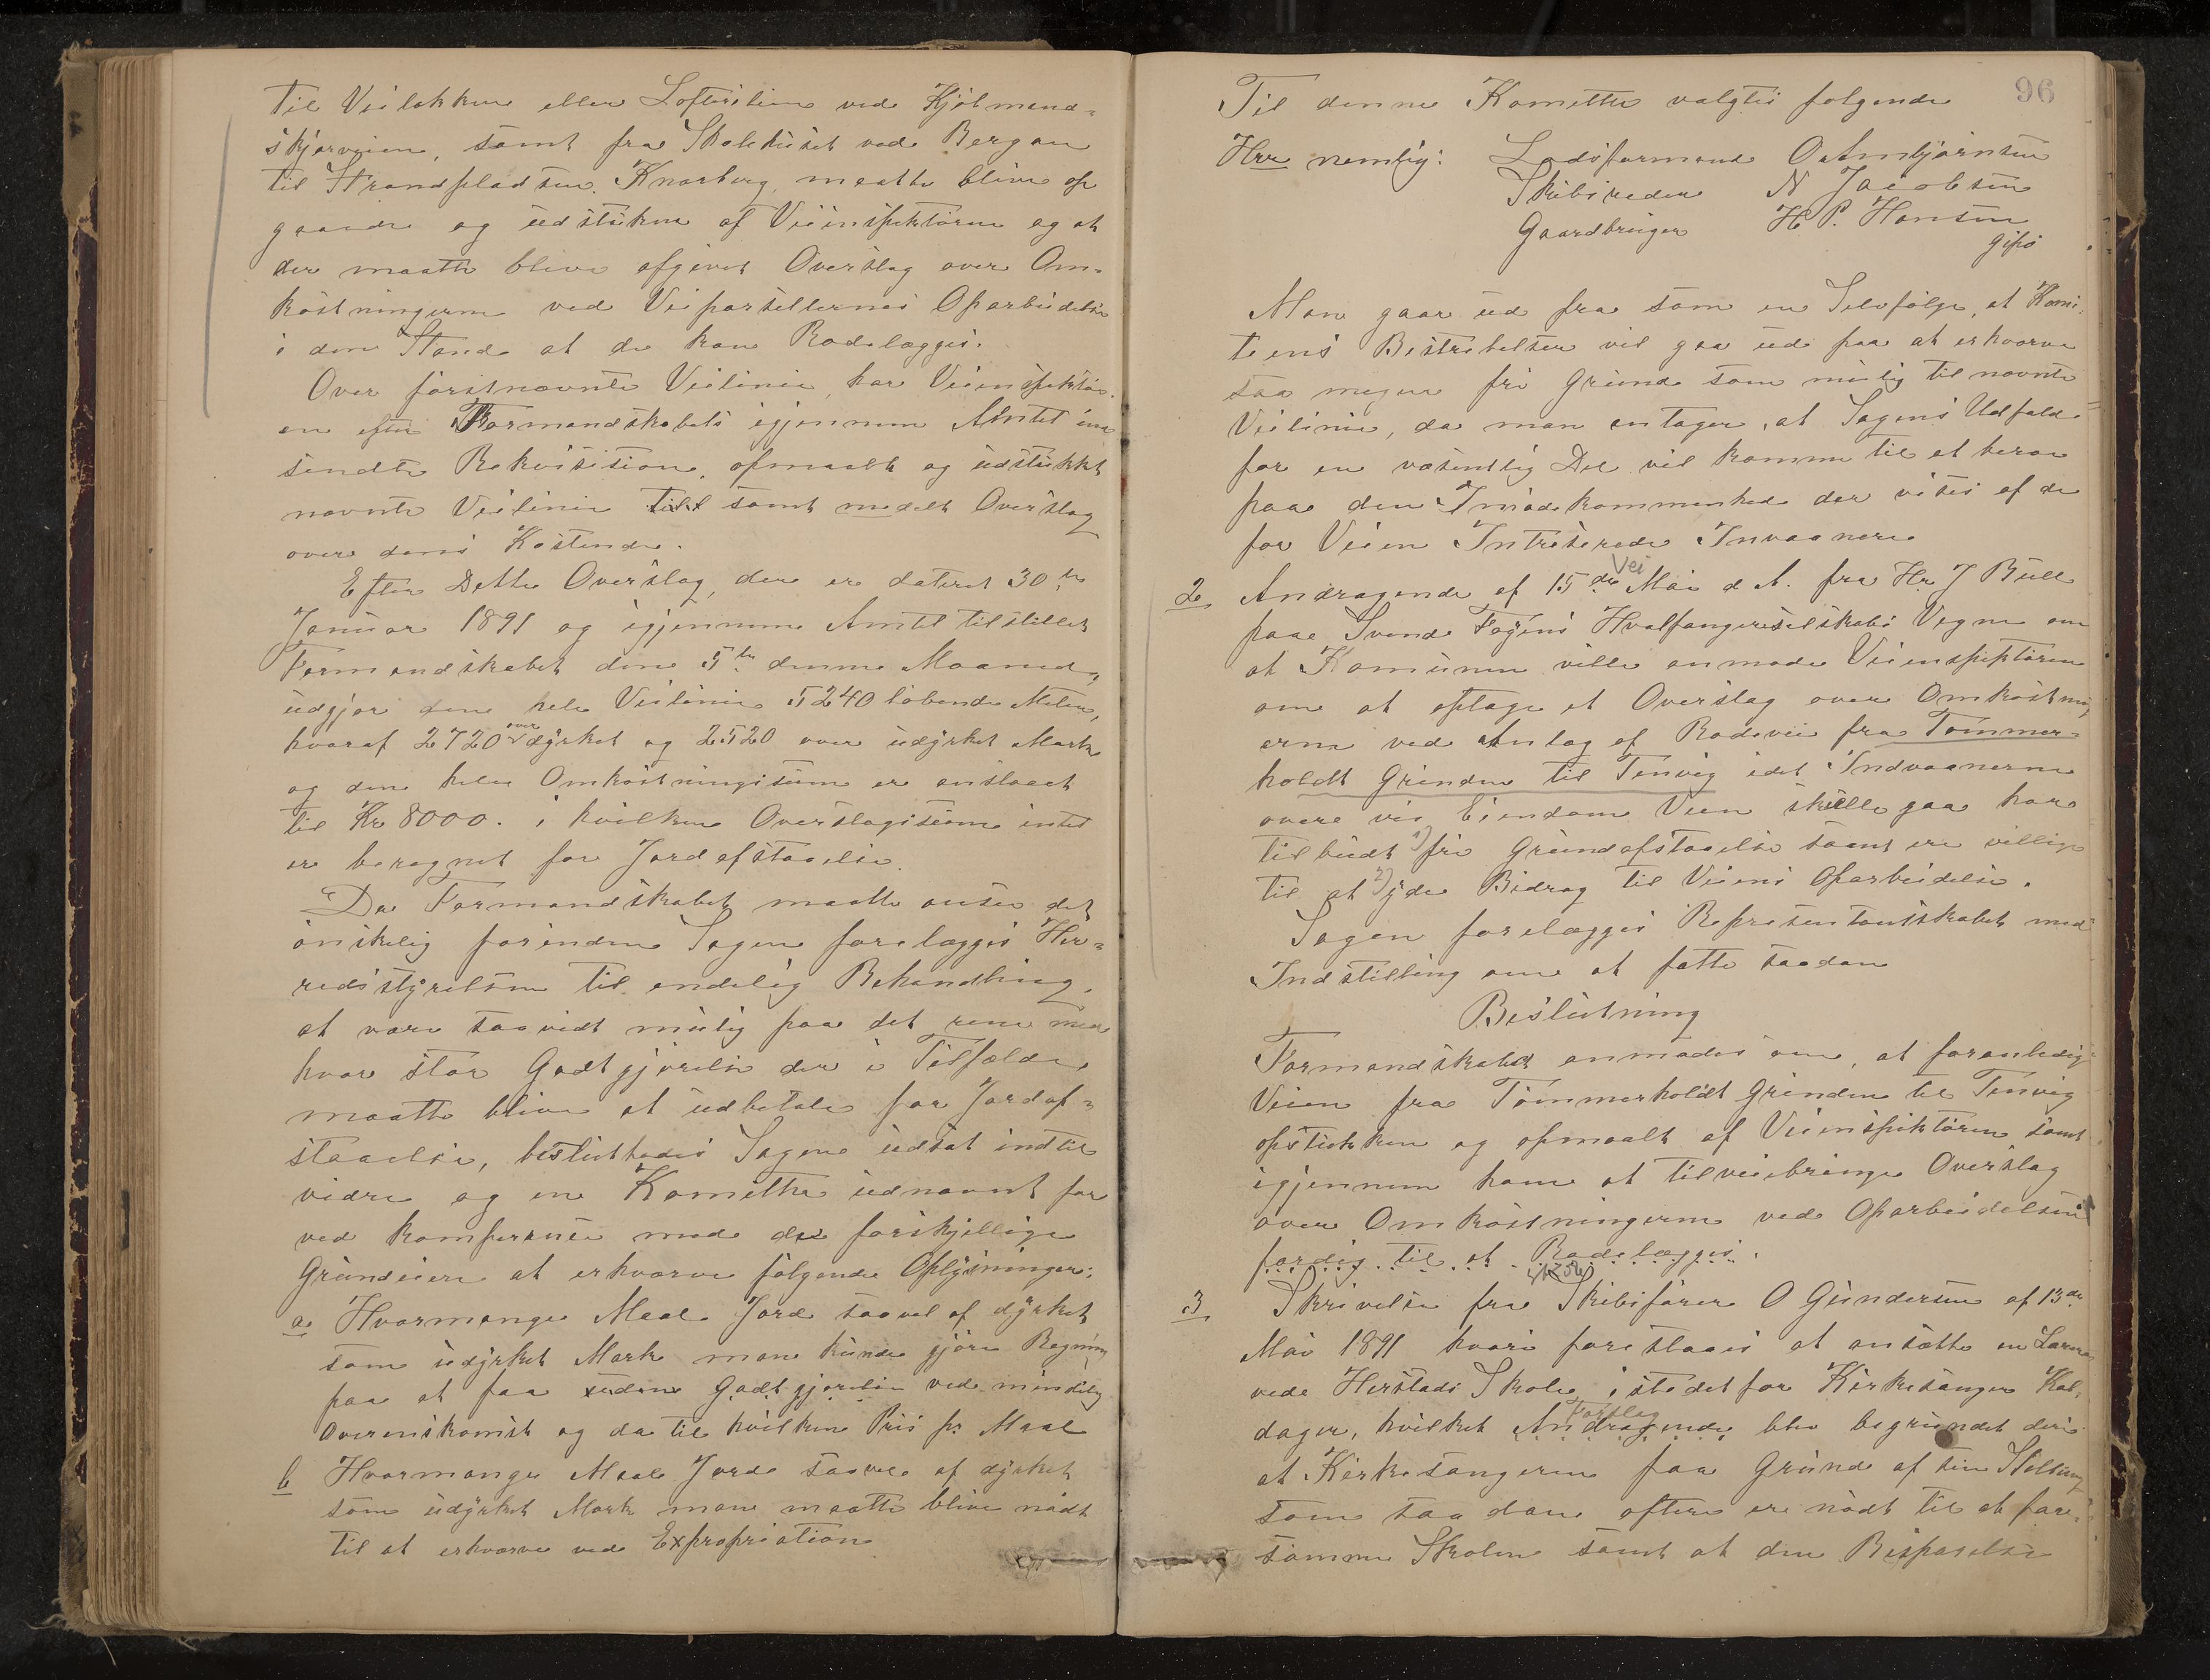 til Veilokken eller Lofterilien ved Kjölmand=
skjærveien, samt fra Skolehuset ved Bergan
til Strandpladsen Knarberg, maatte blive op
gaaede og udstükne af Veiinspektören og at
der maatte blive afgivet Overslag over Om=
kostningerne ved Veiparsellernes Oparbeidelse
i den Stand at de kan Rodelægges.
Over førstnævnte Veilinie, har Veiinspektör=
en efter Formandskabets igjennem Amtet ind
sendte Rekvisition, opmaalt og udstükket
nævnte Veilinie samt meddelt Overslag
over dens Kostende.
Efter Dette Overslag, der er dateret 30te
Januar 1891 og igjennem Amtet tilstillet
Formandskabet den 5te denne Maaned,
udgjør den hele Veilinie 5240 løbende Meter,
hvoraf 2720 over dÿrket og 2520 over udÿrket Mark
og den hele Omkostningssum er anslaaet
til Kr 8000. i hvilken Overslagssum intet
er beregnet for Jordafstaaelse.
Da Formandskabet maatte anse det
ønskelig forinden Sagen forelægges Her=
redsstÿrelsen til endelig Behandling,
at være saavidt mülig paa det rene med
hvor stor Godtgjørelse der i Tilfælde
maatte blive at udbetale for Jordaf=
staaelse, besluttedes Sagen udsat indtil
vidre og en Komitte udnævnt for
ved konferense med de forskjellige
Grundeiere at erhverve følgende Oplÿsninger:
a Hvormange Maal Jord saavel af dÿrket
som udÿrket Mark man kunde gjøre Regning
paa at faa uden Godtgjørelse ved mindelig
Overenskomst og da til hvilken Pris pr Maal
b Hvormange Maal Jord saavel af dÿrket
som udÿrket Mark man maatte blive nødt
til at erhverve ved Expropriation
96
Til denne Komitte valgtes følgende
Hrr nemlig: Lodsformand O Ambjørnsen
Skibsreder N Jacobsen
Gaardbruger H P. Hansen
Gipø
Man gaar ud fra som en Selvfølge, at Komi=
teens Bestrebelser vil gaa ud paa at erhverve
saa megen fri Grund som mülig til nævnte
Veilinie, da man antager, at Sagens Udfald
for en væsentlig Del vil komme til at bero
paa den Imødekommenhed der vises af de
for Veien Intreserede Invaanere
Vei
2 Andragende af 15de Mai d A. fra Hr J Bull
paa Svend Foyens Hvalfangerselskabs Vegne om
at Komunen ville anmode Veiinspektören
om at optage et Overslag over Omkostning
erne ved Anlæg af Rodevei fra Tömmer=
holdt Grinden til Tenvig idet Indvaanerne
over vis Eiendom Veien skulle gaa har
tilbudt 1) fri Grundafstaaelse samt ere villige
til at 2) yde Bidrag til Veiens Oparbeidelse.
Sagen forelægges Representantskabet med
Indstilling om at fatte saadan
Beslutning
Formandskabet anmodes om, at foranledige
Veien fra Tömmerholdt Grinden til Tenvig
opstukken og opmaalt af Veiinspektören samt
igjennem ham at tilveiebringe Overslag
over Omkostningerne ved Oparbeidelsen
færdig til at Rodelægges.
3 Skrivelse fra Skibsfører O Gundersen af 13de
Mai 1891 hvori foreslaaes at ansætte en Lærer
ved Herstads Skole, istedet for Kirkesanger Kal=
dager, hvilket Andragende Forslag blev begrundet deri
at Kirkesangeren paa Grund af sin Stilling
som saadan oftere er nødt til at for=
sømme Skolen samt at den Besparelse